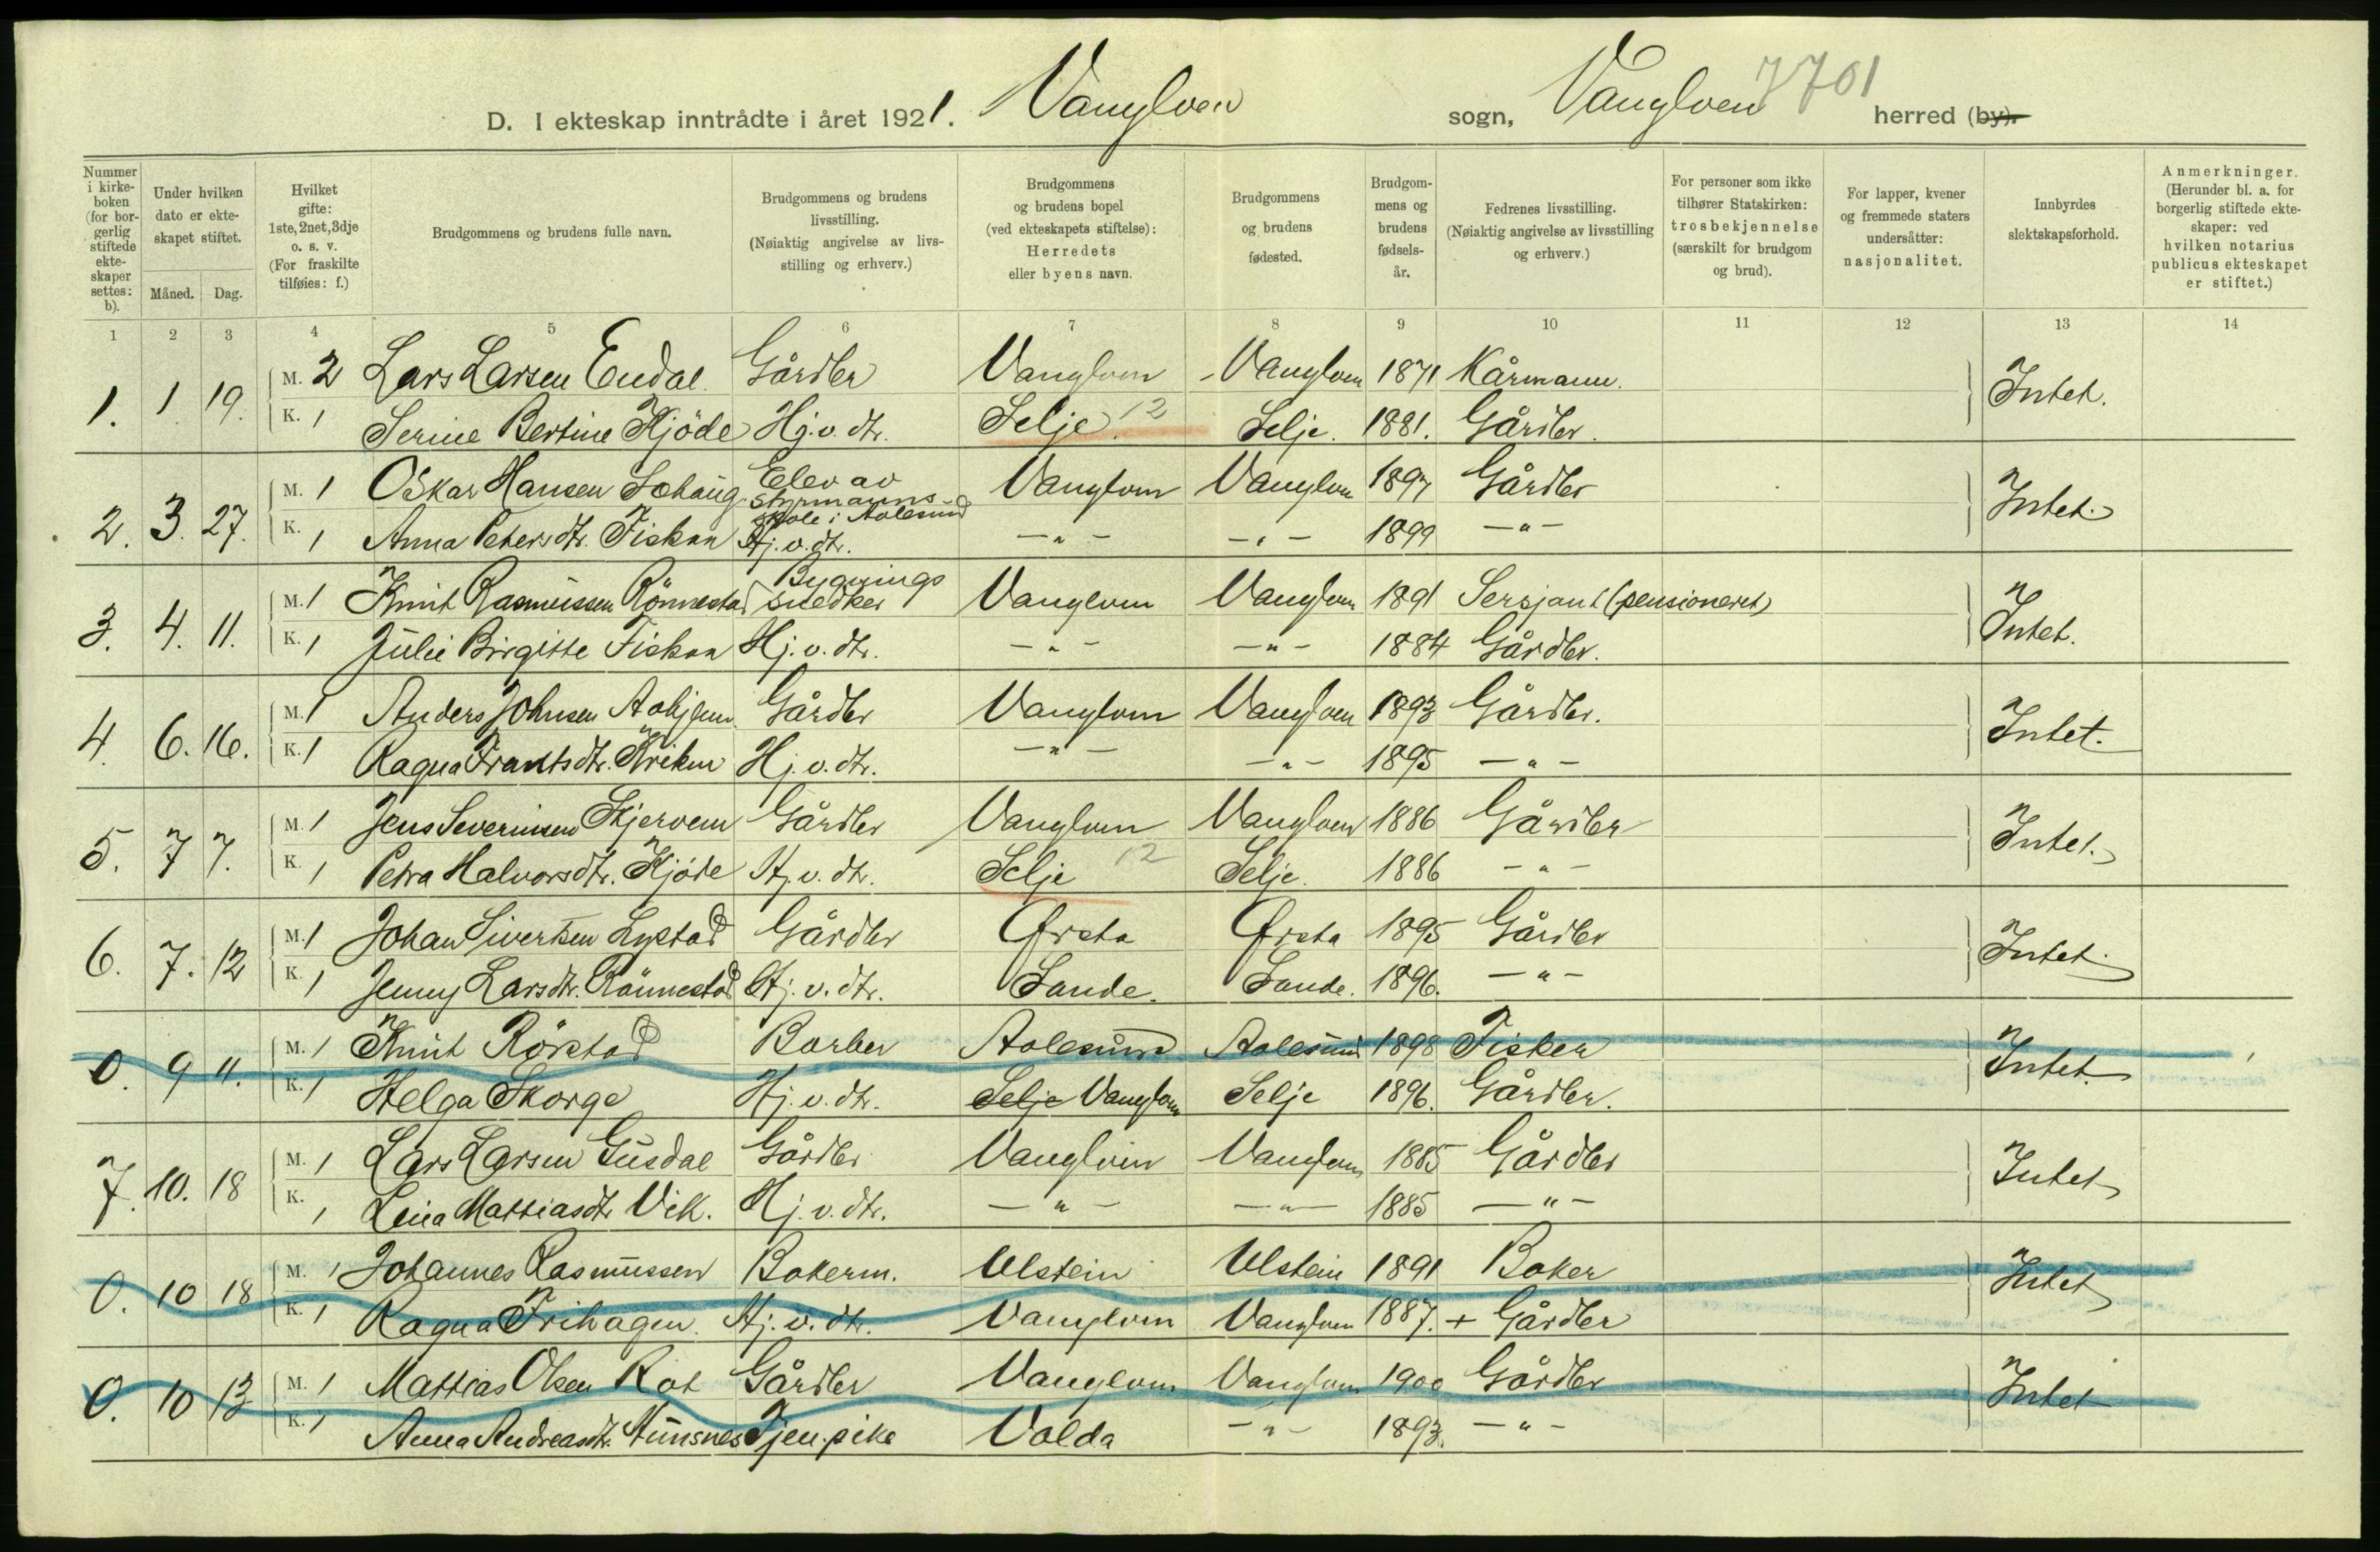 D. I ekteskap inntrådte i året 1921. Vanylven sogn, Vanylven herred (by). 7701
Nummer i kirkeboken (for borgerlig stiftede ekteskaper settes: b).
Under hvilken dato er ekteskapet stiftet.
Måned. Dag.
Hvilket gifte: 1ste, 2net, 3dje o. s. v. (For fraskilte tilføies: f.)
Brudgommens og brudens fulle navn.
Brudgommens og brudens livsstilling. (Nøiaktig angivelse av livsstilling og erhverv.)
Brudgommens og brudens bopel (ved ekteskapets stiftelse): Herredets eller byens navn.
Brudgommens og brudens fødested.
Brudgommens og brudens fødselsår.
Fedrenes livsstilling. (Nøiaktig angivelse av livsstilling og erhverv.)
For personer som ikke tilhører Statskirken: trosbekjennelse (særskilt for brudgom og brud).
For lapper, kvener og fremmede staters undersåtter: nasjonalitet.
Innbyrdes slektskapsforhold.
Anmerkninger. (Herunder bl. a. for borgerlig stiftede ekteskaper: ved hvilken notarius publicus ekteskapet er stiftet.)
1 2 3 4 5 6 7 8 9 10 11 12 13 14
1. 1 19. M. 2 Lars Larsen Endal Gårdbr Vanylven Vanylven 1871 Kårmann. Intet.
K. 1 Serine Bertine Kjöde Hj.v. dtr. Selje. 12 Selje. 1881. Gårdbr.
2. 3. 27. M. 1 Oskar Hansen Sohaug Elev av styrmannsskole i Aalesund Vanylven Vanylven 1897 Gårdbr Intet.
K. 1 Anna Petersdtr. Fiskaa Hj.v.dtr. - " - - " - 1899 - " -
3. 4. 11. M. 1 Knut Rasmussen Rönnestad Bygningssnedker Vanylven Vanylven 1891 Sersjant (pensioneret) Intet.
K. 1 Julie Birgitte Fiskaa Hj.v.dtr. - " - - " - 1884 Gårdbr.
4. 6. 16. M. 1 Anders Johnsen Aahjem Gårdbr Vanylven Vanylven 1893 Gårdbr. Intet.
K. 1 Ragna Frantsdtr. Kriken Hj.v.dtr. - " - - " - 1895 - " -
5. 7 7. M. 1 Jens Severinsen Skjervem Gårdbr Vanylven Vanylven 1886 Gårdbr Intet.
K. 1 Petra Halvorsdtr. Kjöde Hj.v.dtr. Selje 12 Selje. 1886 - " -
6. 7. 12 M. 1 Johan Sivertsen Lystad Gårdbr Ørsta Ørsta 1895 Gårdbr Intet.
K. 1 Jenny Larsdtr. Rönnestad Hj.v.dtr. Sande. Sande. 1896. - " -
0. 9 11. M. 1 Knut Rörstad Barber Aalesund Aalesund 1898 Fisker Intet.
K. 1 Helga Skorge Hj.v.dtr. Selje Vanylven Selje 1896. Gårdbr.
7. 10. 18 M. 1 Lars Larsen Gusdal Gårdbr Vanylven Vanylven 1885 Gårdbr Intet
K. 1 Lena Mattiasdtr Vik. Hj.v.dtr. - " - - " - 1885 - " -
0. 10 18 M. 1 Johannes Rasmussen Bakerm. Ulstein Ulstein 1891 Baker Intet
K. 1 Ragna Frihagen. Hj.v.dtr. Vanylven Vanylven 1887. + Gårdbr
0. 10 13 M. 1 Mattias Olsen Rot Gårdbr Vanylven Vanylven 1900 Gårdbr Intet
K. 1 Anna Andreasdtr. Hunsnes Tjen.pike Volda - " - 1893. - " -